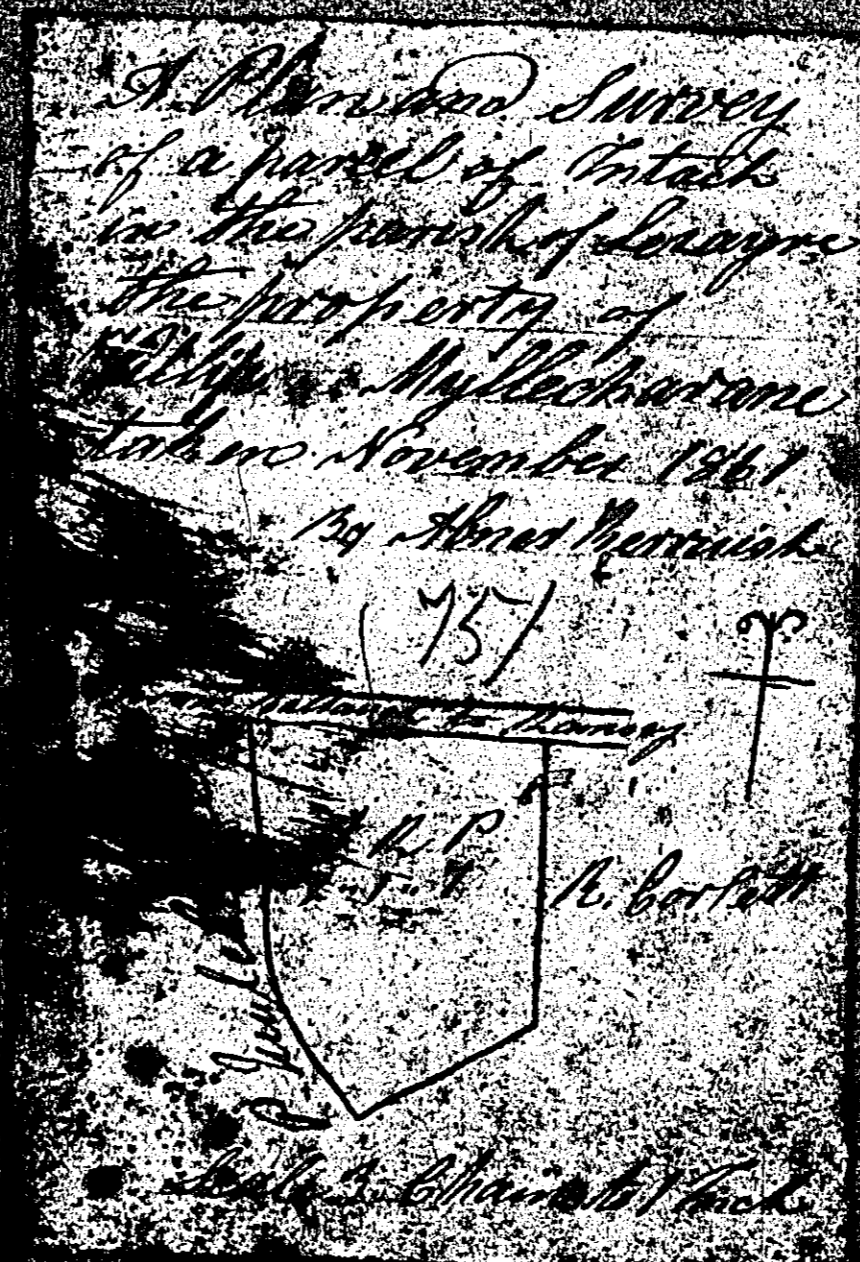 A Plan and Survey
of a parcel of Intack
in the parish of Lezayre
the property of
Philip Myllecharane
taken November 1861
By Abner Kerruish
757
Ballaugh to Ramsey
R P
R. Corlett
Scale 3 Chains to 1 Inch